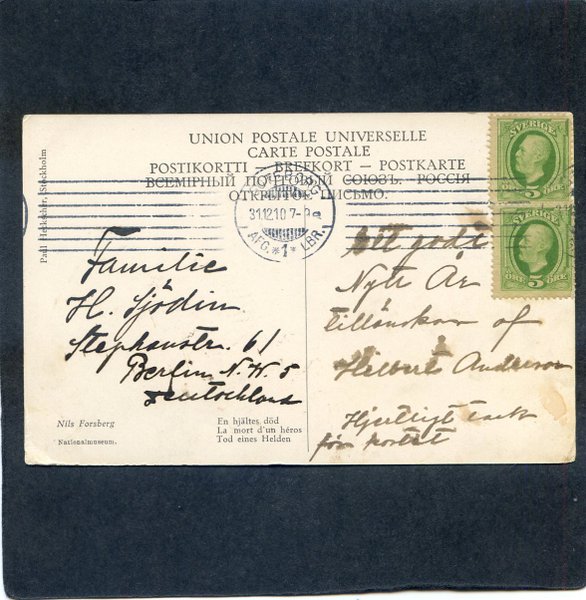 UNION POSTALE UNIVERSELLE
CARTE POSTALE
POSTIKORTTI — BREFKORT — POSTKARTE
ВСЕМІРНЫЙ ПОЧТОВЫЙ СОЮЗЪ. РОССІЯ
ОТКРЫТОЕ ПИСЬМО.
Stockholm
SVERIGE
5
ÖRE
SVERIGE
5
ÖRE ÖRE
GÖTEBORG
31.12.10 7
AFG. *1* LBR.
Familie
H. Sjödin
Stephanstr. 61
Berlin N.W. 5
Deutschland
Ett godt
Nytt År
tillönskas af
Helbert Anderson
Hjertligt tack
för kortet
Nils Forsberg
Nationalmuseum.
En hjältes död
La mort d'un héros
Tod eines Helden